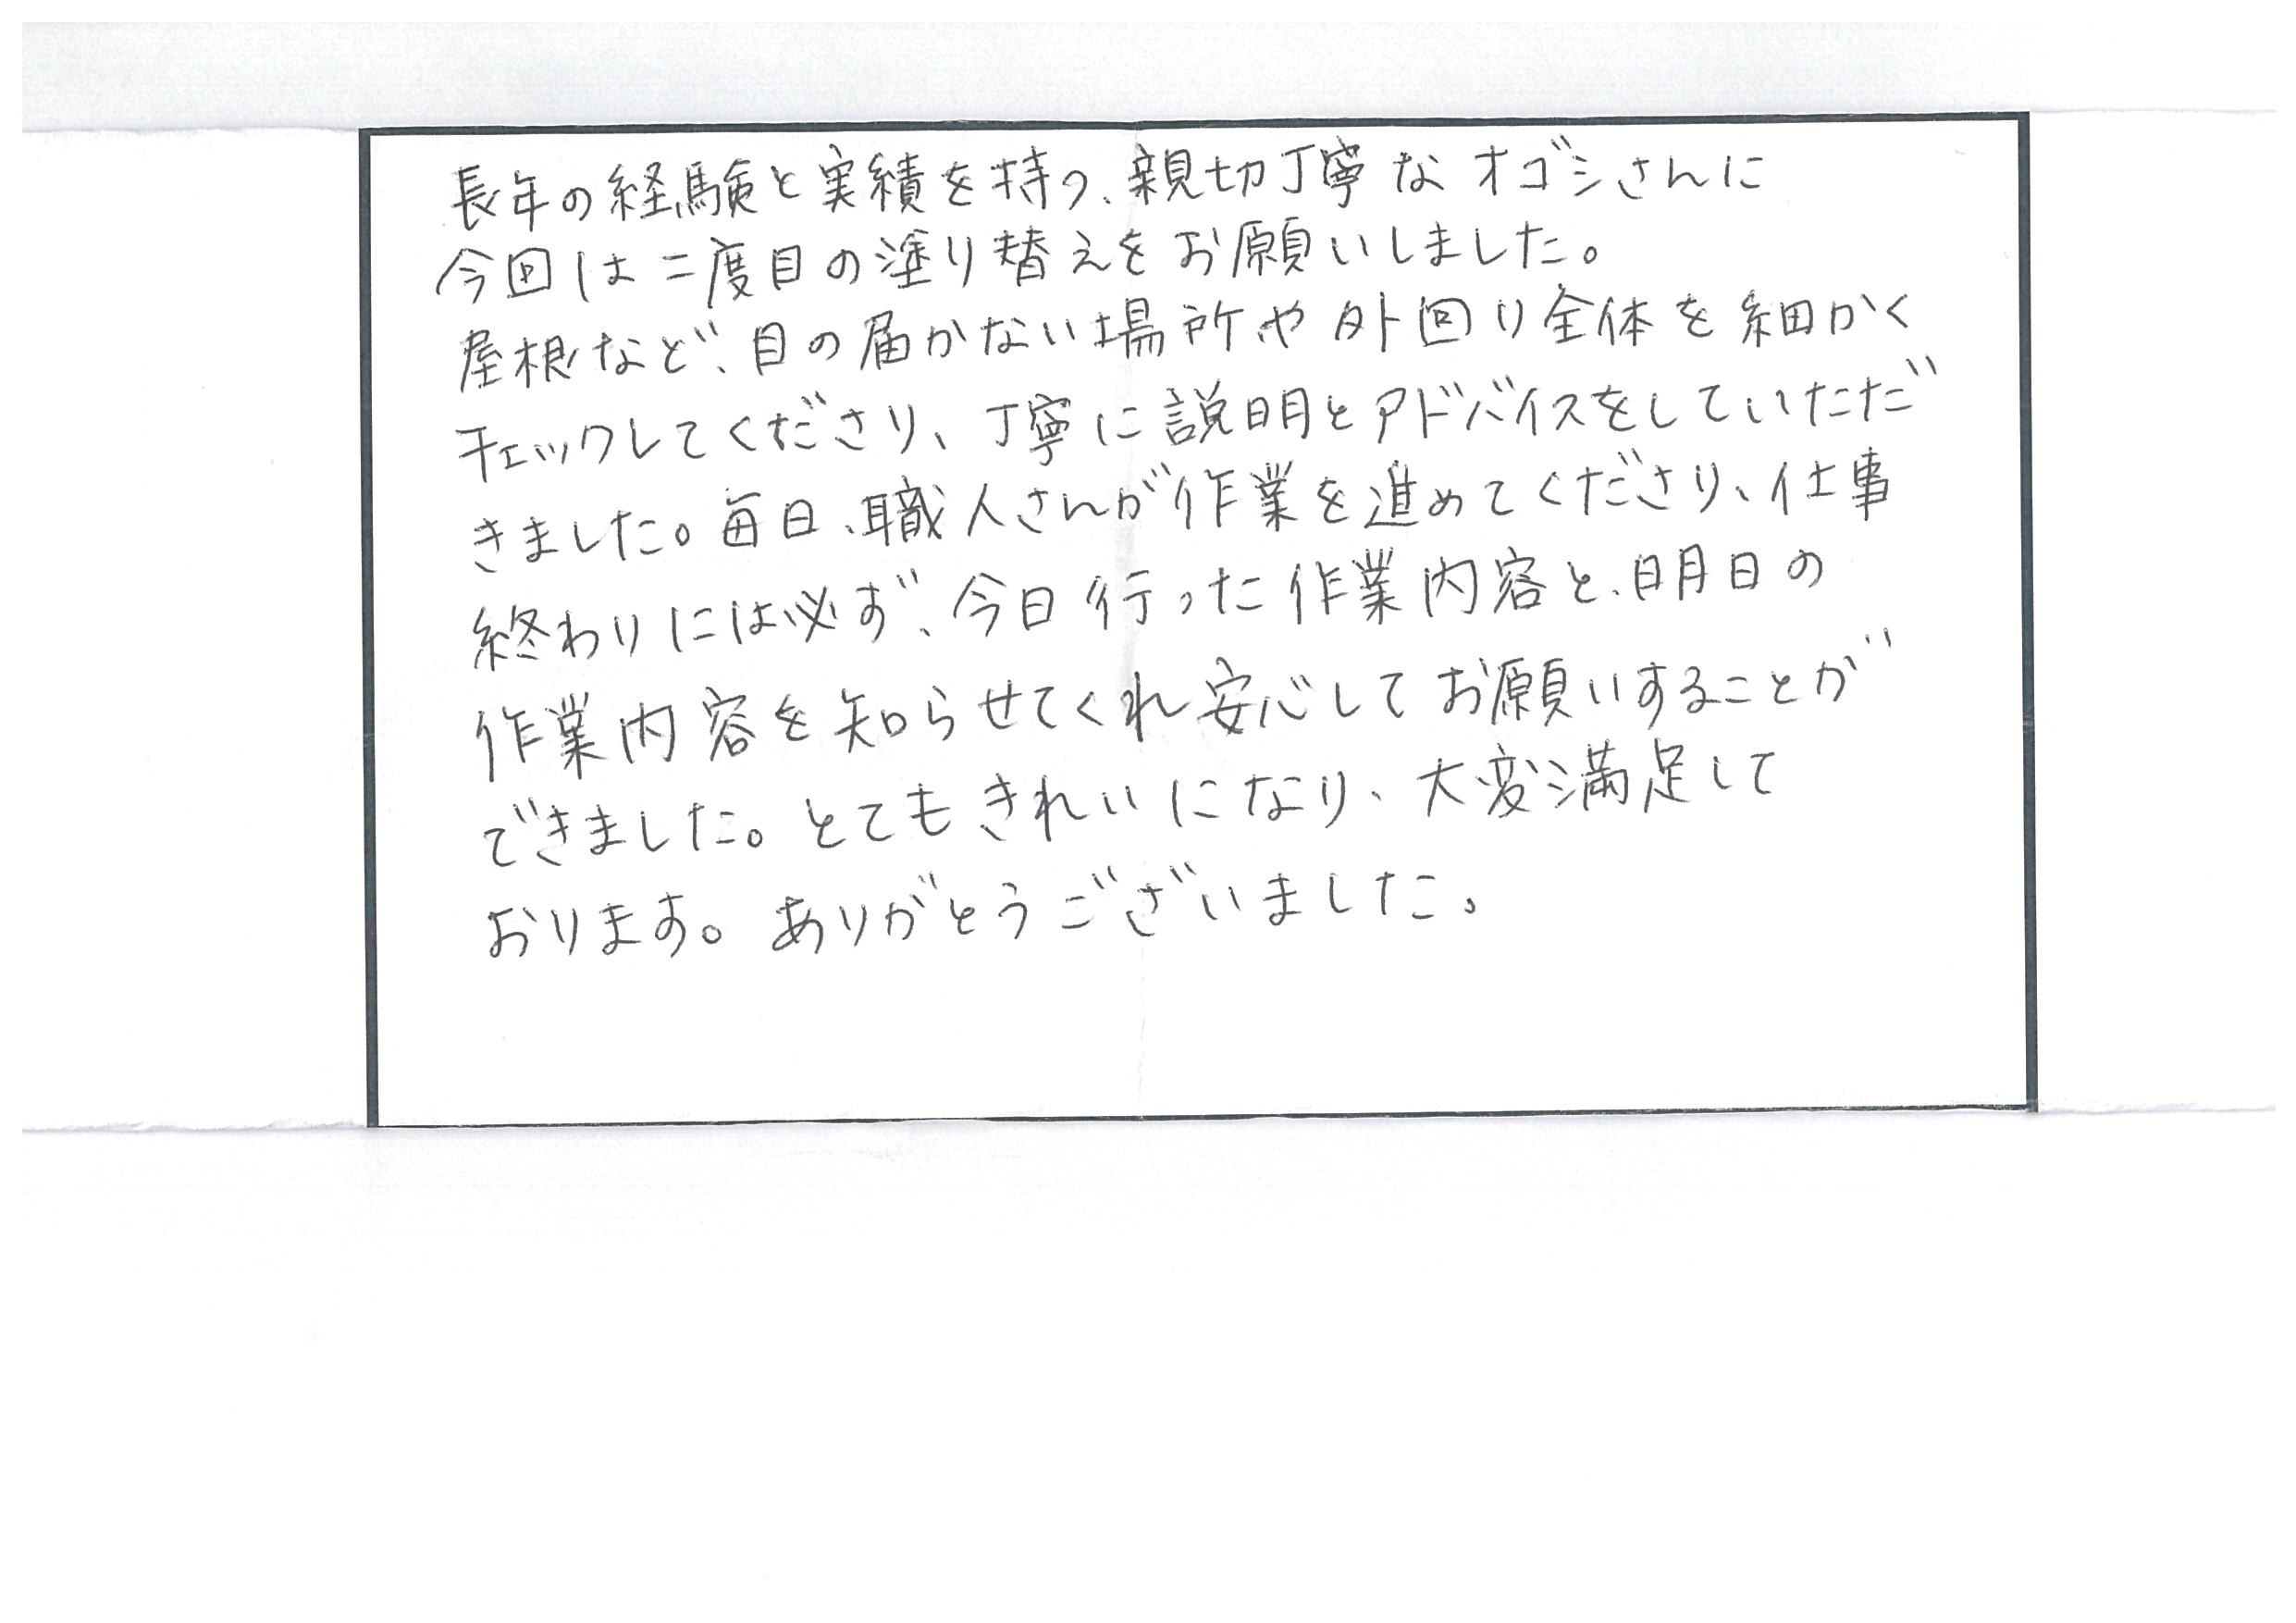 長年の経験と実績を持つ、親切丁寧なオゴシさんに
今回は二度目の塗り替えをお願いしました。
屋根など、目の届かない場所や外回り全体を細かく
チェックしてくださり、丁寧に説明とアドバイスをしていただ
きました。毎日、職人さんが作業を進めてくださり、仕事
終わりには必ず、今日行った作業内容と、明日の
作業内容を知らせてくれ安心してお願いすることが
できました。とてもきれいになり、大変満足して
おります。ありがとうございました。